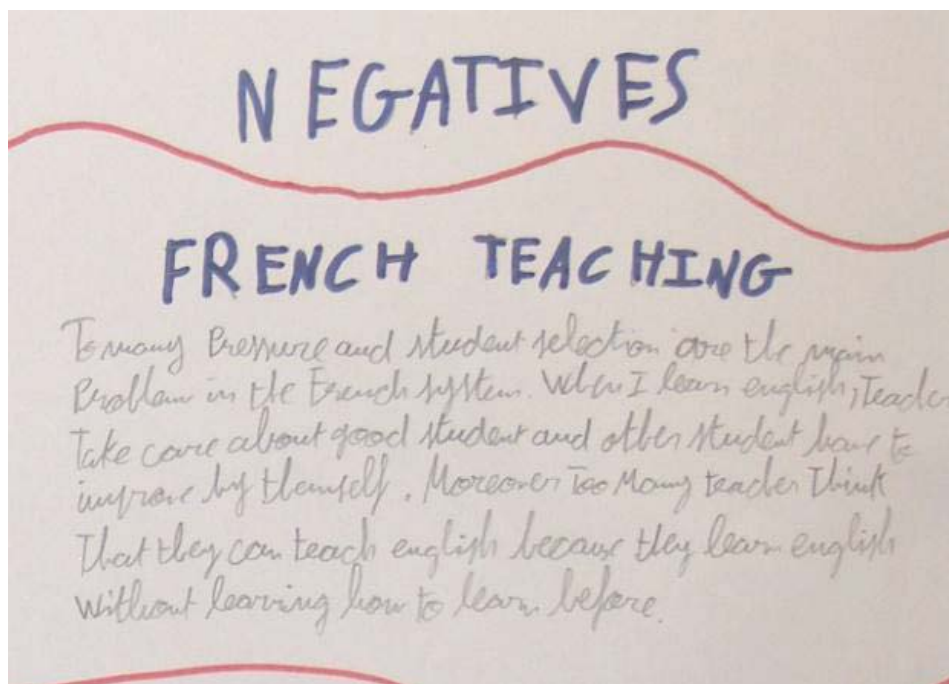 NEGATIVES
FRENCH TEACHING
To many Pressure and student selection are the main
Problem in the French system. When I learn english, Teacher
Take care about good student and other student have to
improve by themself. Moreover Too Many teacher Think
That they can teach english because they learn english
without learning how to learn before.